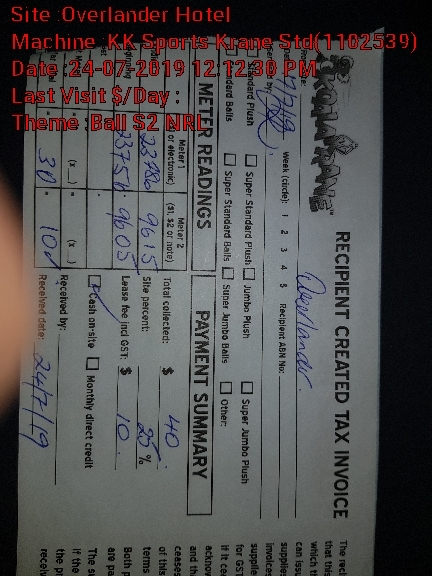 Site :Overlander Hotel
Machine :KK Sports Krane Std(1102539)
Date :24-07-2019 12:12:30 PM
Last Visit $/Day :
Theme :Ball $2 NRL
RECIPIENT CREATED TAX INVOICE
Overlander
Week (circle): 1 2 3 4 5 Recipient ABN No:
Standard Plush Super Standard Plush Jumbo Plush Super Jumbo Plush
Standard Balls Super Standard Balls Super Jumbo Balls Other:
METER READINGS
PAYMENT SUMMARY
Meter 1
or electronic)
Meter 2
($1, $2 or note)
23786 9615
23756 9605
30 10
Total collected: $ 40
Site percent: 25 %
Lease fee incl GST: $ 10
Cash on-site Monthly direct credit
Received by:
Received date: 24/7/19
The reci
that this
which th
can issu
supplie
invoices
supplie
for GST
if it ce
acknow
and th
ceases
of this
terms
Both p
are pa
The su
if the
the p
receiv